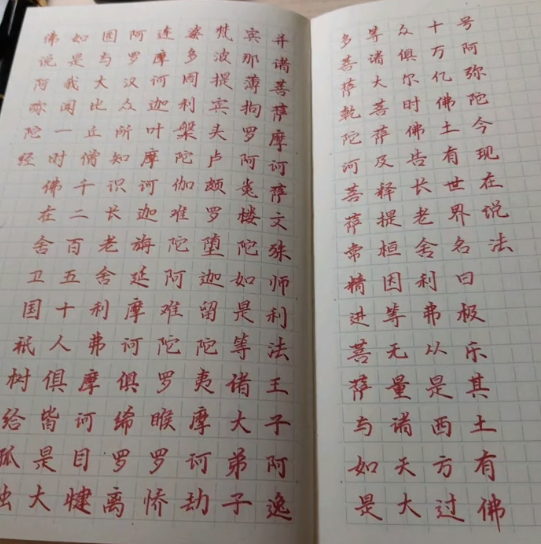 佛说阿弥陀经
如是我闻一时佛在舍卫国祇树给孤独
园与大比丘僧千二百五十人俱皆是大
阿罗汉众所知识长老舍利弗摩诃目犍
连摩诃迦叶摩诃迦旃延摩诃俱絺罗离
婆多周利槃陀伽难陀阿难陀罗睺罗憍
梵波提宾头卢颇罗堕迦留陀夷摩诃劫
宾那薄拘罗阿㝹楼陀如是等诸大弟子
并诸菩萨摩诃萨文殊师利法王子阿逸
多菩萨乾陀诃菩萨常精进菩萨与如是
等诸大菩萨及释提桓因等无量诸天大
众俱尔时佛告长老舍利弗从是西方过
十万亿佛土有世界名曰极乐其土有佛
号阿弥陀今现在说法